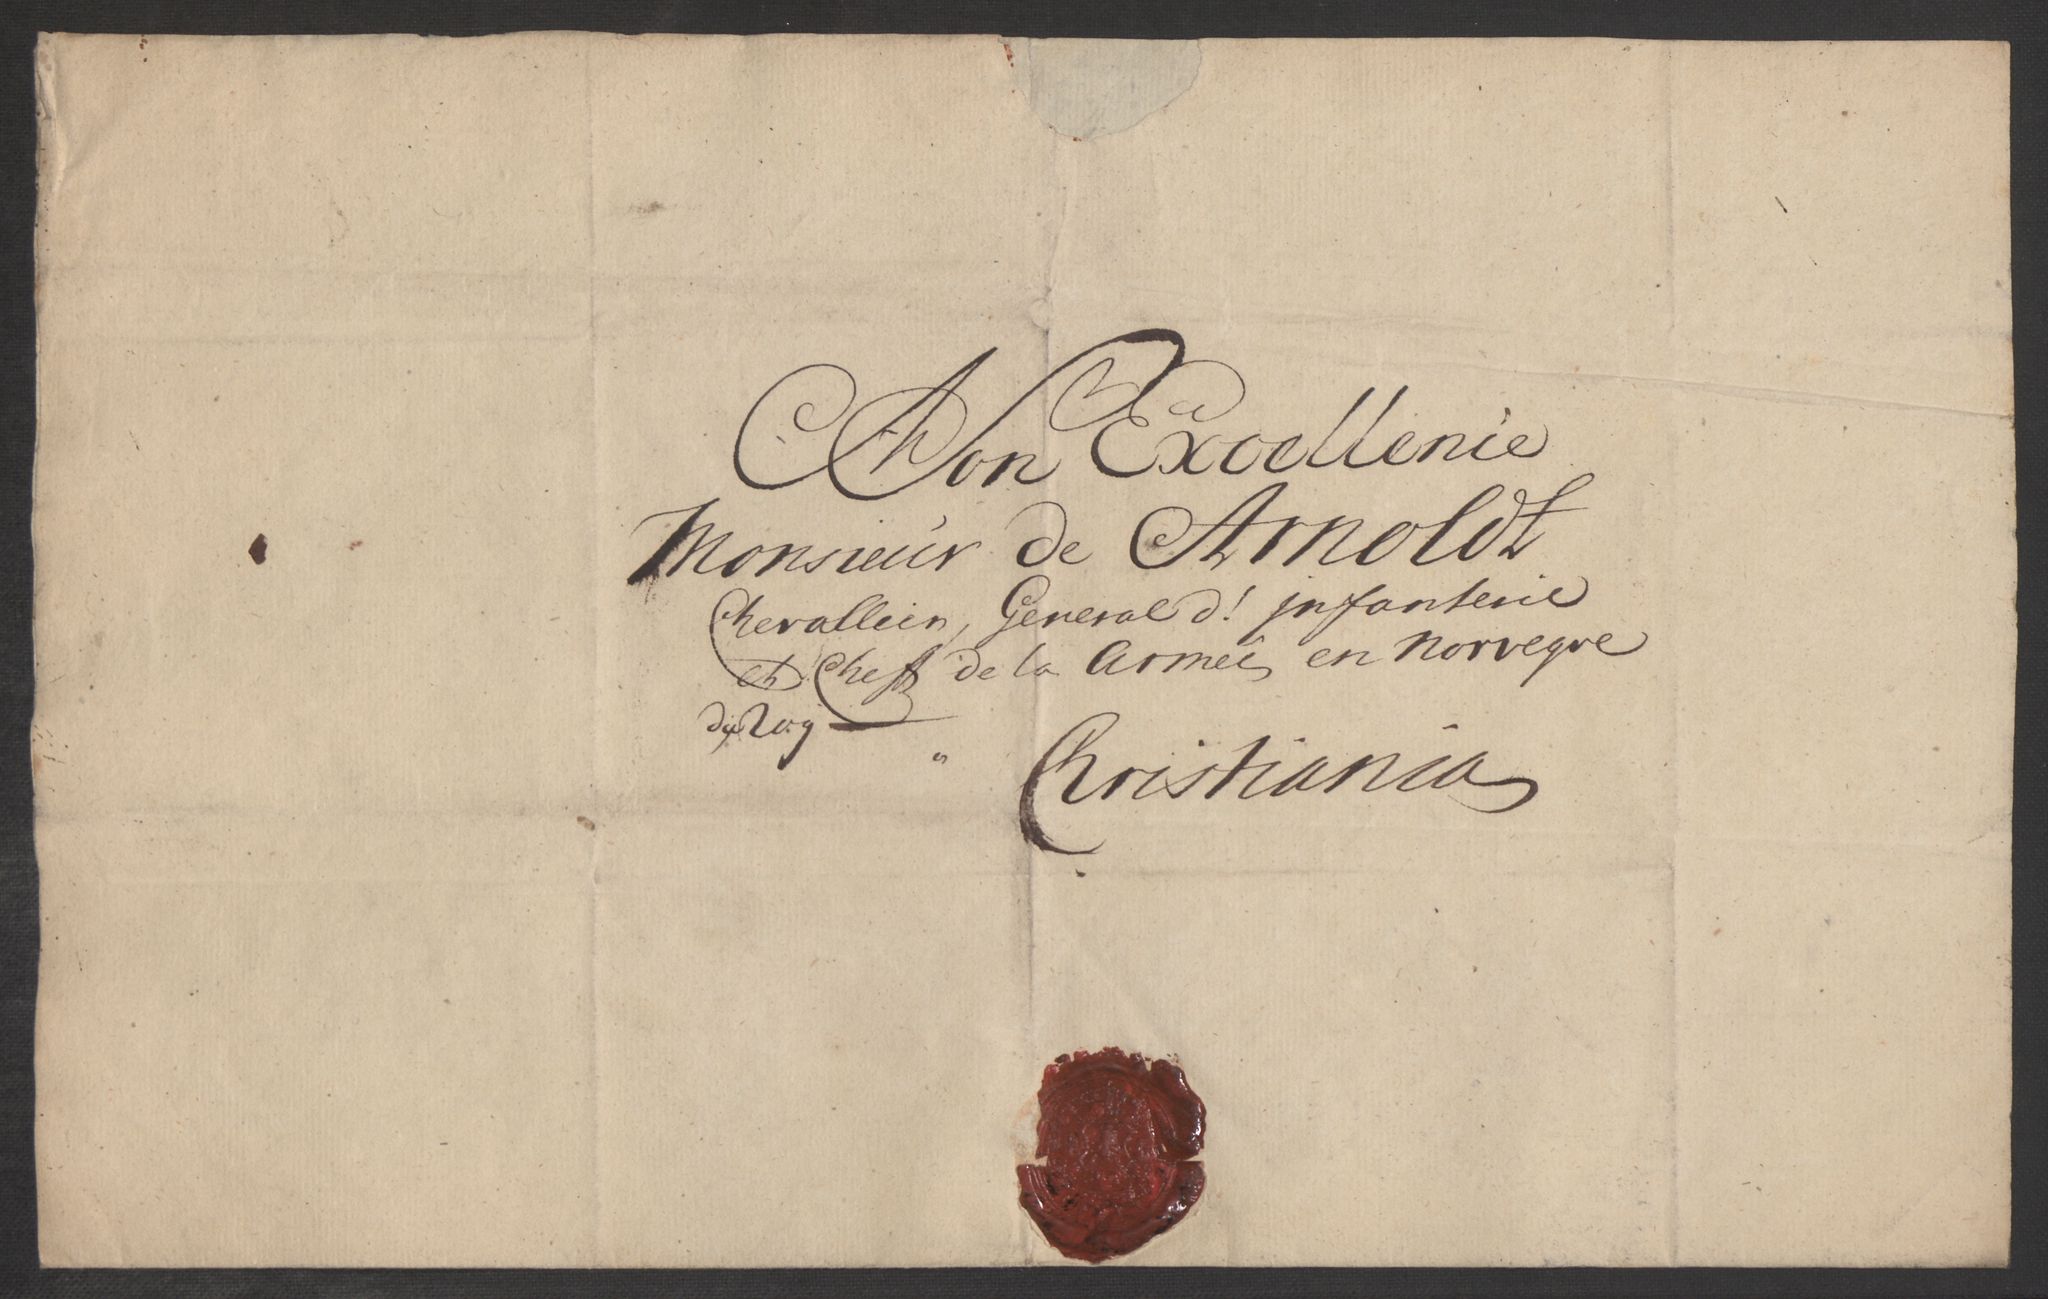 A Son Excellenie
Monsieur de Arnoldt
Chevallier, General d! jnfanterie
et Cheff de la Armée en Norvegve
Christiania